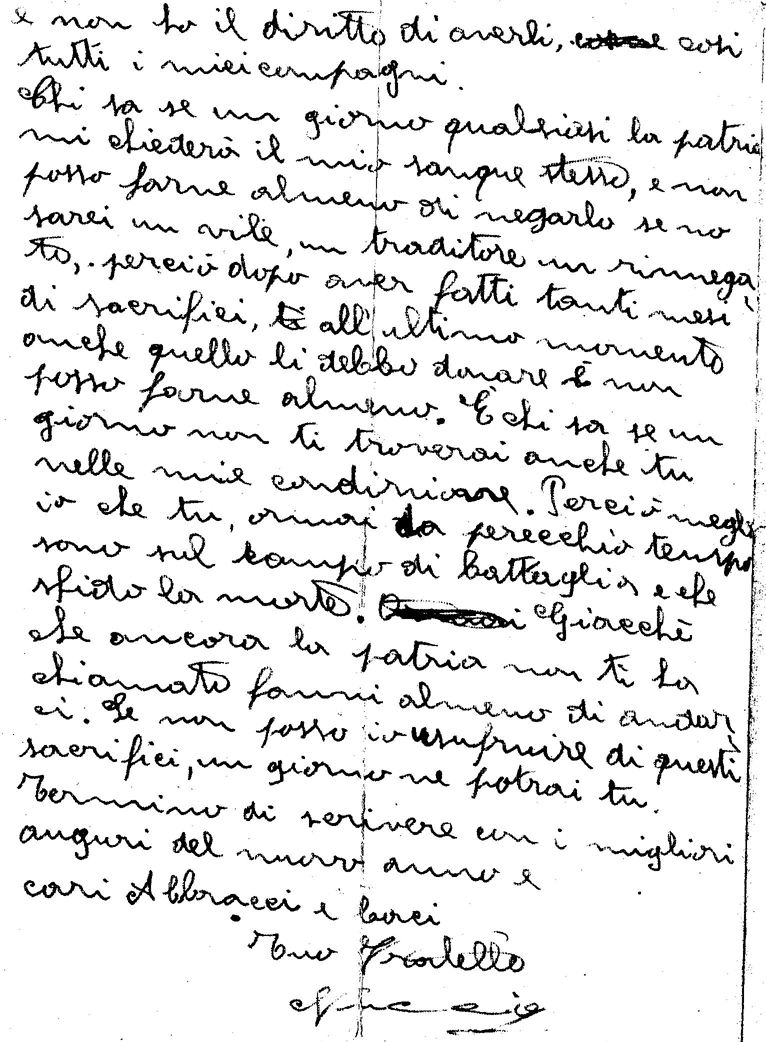 e non ho il diritto di averli, come cosi
tutti i miei compagni.
Chi sa se un giorno qualsiasi la patria
mi chiederà il mio sangue stesso, e non
posso farne almeno di negarlo se no
sarei un vile, un traditore un rinnega
to, perciò dopo aver fatti tanti mesi
di sacrifici, ti all'ultimo momento
anche quello li debbo donare è non
posso farne almeno. È chi sa se un
giorno non ti troverai anche tu
nelle mie condizioni. Perciò meglio
io che tu, ormai da perecchio tempo
sono sul campo di battaglia e che
sfido la morte. Giacchè
che ancora la patria non ti ha
chiamato fanni almeno di andar
ci. Se non posso io usufruire di questi
sacrifici, un giorno ne potrai tu.
Termino di scrivere con i migliori
auguri del nuovo anno e
cari Abbracci e baci
Tuo Fratello